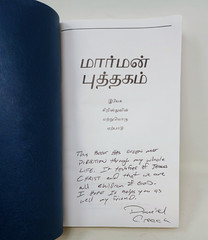 மார்மன்
புத்தகம்
இயேசு
கிறிஸ்துவின்
மற்றுமொரு
ஏற்பாடு
This book has given me
DIRECTION through my whole
LIFE. It testifies of JESUS
CHRIST and that we are
all children of GOD.
I HOPE it helps you as
well my friend.
Daniel